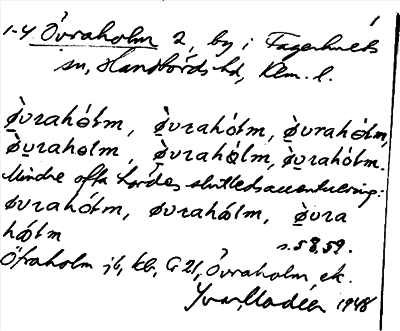 1-4 Övraholm 2, by i Fagerhults
sn, Handbörds hd, Klm. l.
ö̀vrahólm, ö̀vrahólm, ö̀vrahólm,
ö̀vraholm, ö̀vrahólm, ö̀vrahólm.
Mindre ofta hördes slutledsaccentuering:
øvrahólm, øvrahólm, ö̀vra
hólm s. 58, 59.
Öfraholm jb, kb, G 21, Övraholm, ek.
Yvar Modéer 1948